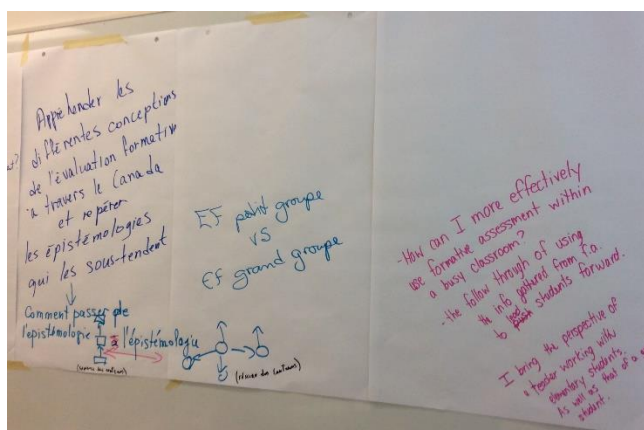 Appréhender les
différentes conceptions
de l'évaluation formative
à travers le Canada
et repérer
les épistémologies
qui les sous-tendent
Comment passer de
l'épistémologie
à l'épistémologie
EF petit groupe
vs
EF grand groupe
-How can I more effectively
use formative assessment within
a busy classroom?
-the follow through of using
the info gathered from f.a.
to students forward.
I bring the perspective of
a teacher working with
elementary students.
As well as that of a
student.